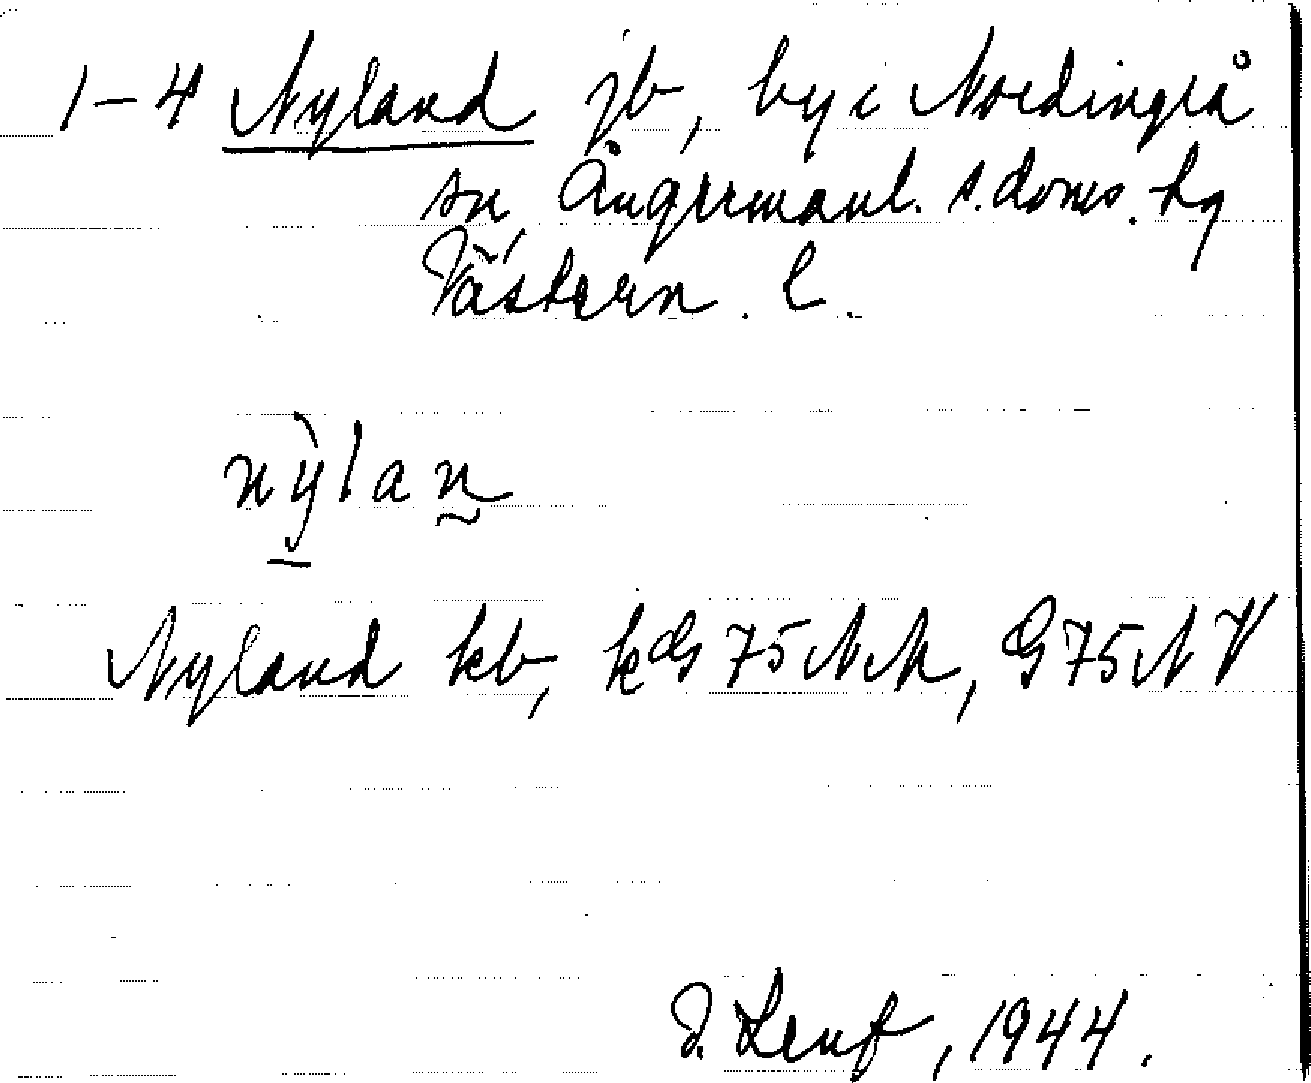 1-4 Nyland jb, by i Nordingrå
sn, Ångermanl. s. doms. hg
Västern. l.
nỳlan
Nyland kb, kG 75 NM, G 75 N V
Lenf, 1944.